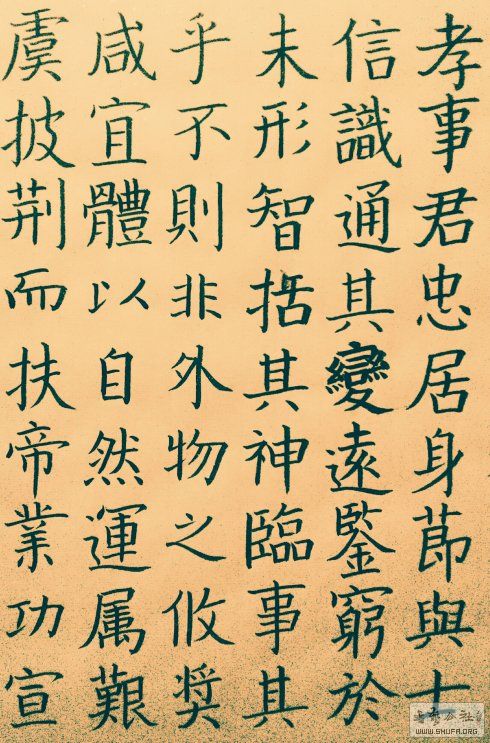 孝事君忠居身莭與士
信識通其變遠鑒窮於
未形智括其神臨事其
乎不則非外物之攸奨
咸宜體以自然運属艱
虞披荆而扶帝業功宣
WWW.SHUFA.ORG